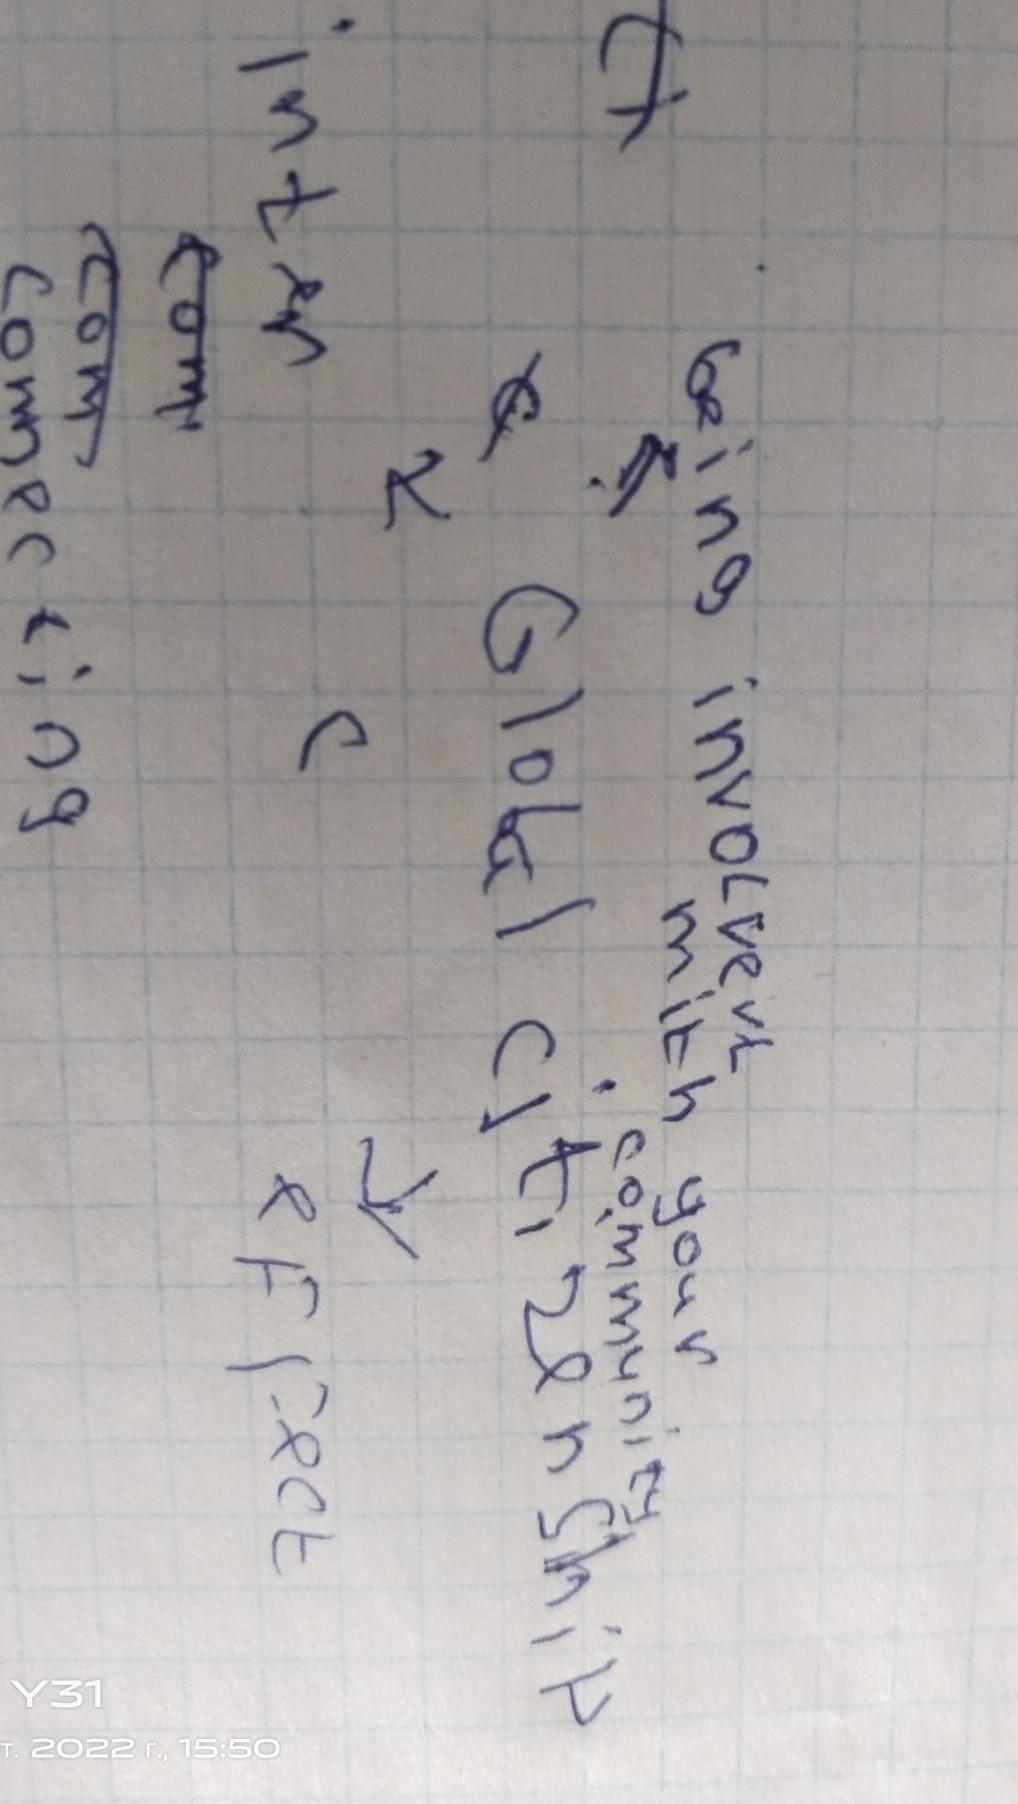 being involvent
with your
community
Global Citizenship
inter
com
com
connecting
effect
Y31
т. 2022 г., 15:50